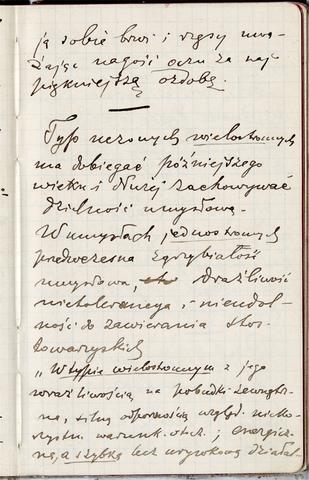 ją sobie brwi i rzęsy uwa-
żając nagość oczu za naj
piękniejszą ozdobę.
Typ uczonych wielostronnych
ma dobiegać późniejszego
wieku i dłużej zachowywać
dzielność umysłową.
W umysłach jednostronnych
przedwczesna zgrzybiałość
umysłowa, drażliwość
nietolerancya, i nieudol-
ność do zawierania stos.
towarzyskich
„W typie wielostronnym z jego
wrażliwością na pobudki zewnętrz-
ne, silną odpornością względ. nieko-
rzystn. warunk. otcz.; energicz-
ną, a szybką lecz urywkową działal-